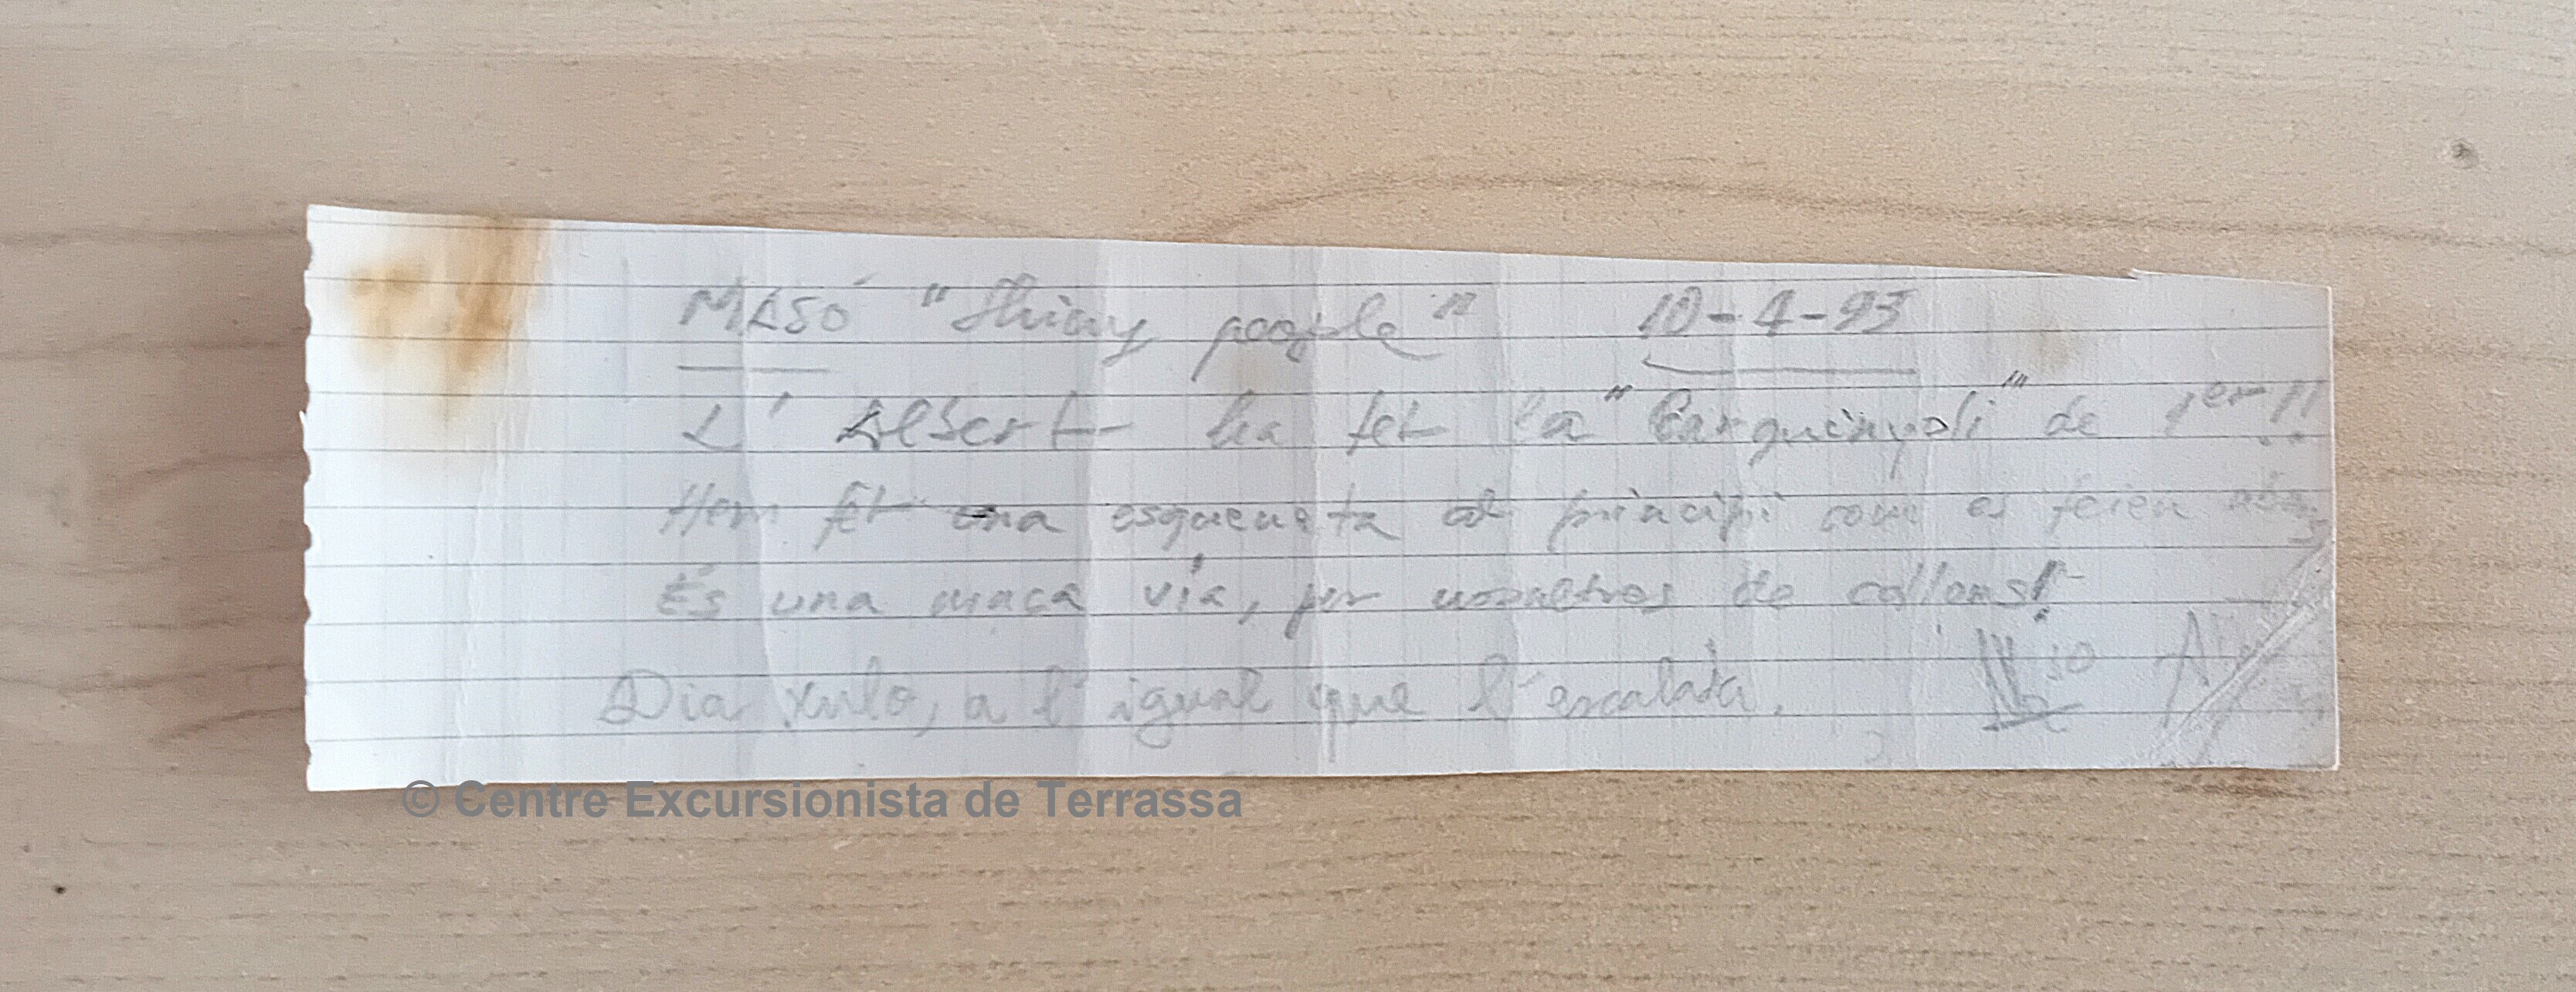 MASÓ "Shiny people" 10-4-93
L'Albert ha fet la "Carquinyoli" de 1er!!
Hem fet una esqueneta al principi com es feien abans
És una maca via, per nosaltres de collons!
Dia xulo, a l'igual que l'escalada.
© Centre Excursionista de Terrassa